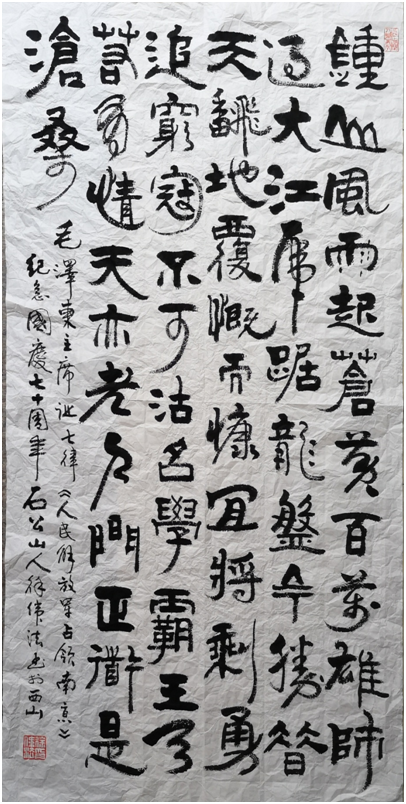 鍾山風雨起蒼黃百萬雄師
過大江虎踞龍盤今勝昔
天飜地覆慨而慷宜將剩勇
追窮寇不可沽名學霸王天
若有情天亦老人間正道是
滄桑
毛澤東主席詩七律《人民解放軍占領南京》
紀念國慶七十周年石公山人徐偉法書於西山